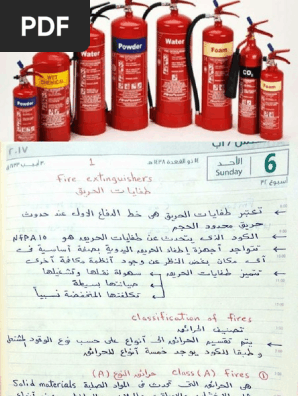 PDF
WET CHEMICAL
Powder
Water
Powder
Water
Foam
CO2
Foam
٢٠١٧
1
الأحد
Sunday
6
Fire extinguishers
طفايات الحريق
تعتبر طفايات الحريق هي خط الدفاع الأول عند حدوث
حريق محدود الحجم
الكود الذي يتحدث عن طفايات الحريق هو NFPA 10
تتواجد أجهزة إطفاء الحريق اليدوية بصفة أساسية في
أي مكان بغض النظر عن وجود أنظمة مكافحة أخرى
تتميز طفايات الحريق بـ سهولة نقلها وتشغيلها
صيانتها بسيطة
تكلفتها المنخفضة نسبياً
classification of fires
تصنيف الحرائق
يتم تقسيم الحرائق إلى أنواع على حسب نوع الوقود المشتعل
و طبقا للكود يوجد خمسة أنواع للحرائق
① class (A) Fires حرائق النوع (A)
هي الحرائق التي تحدث في المواد الصلبة Solid materials